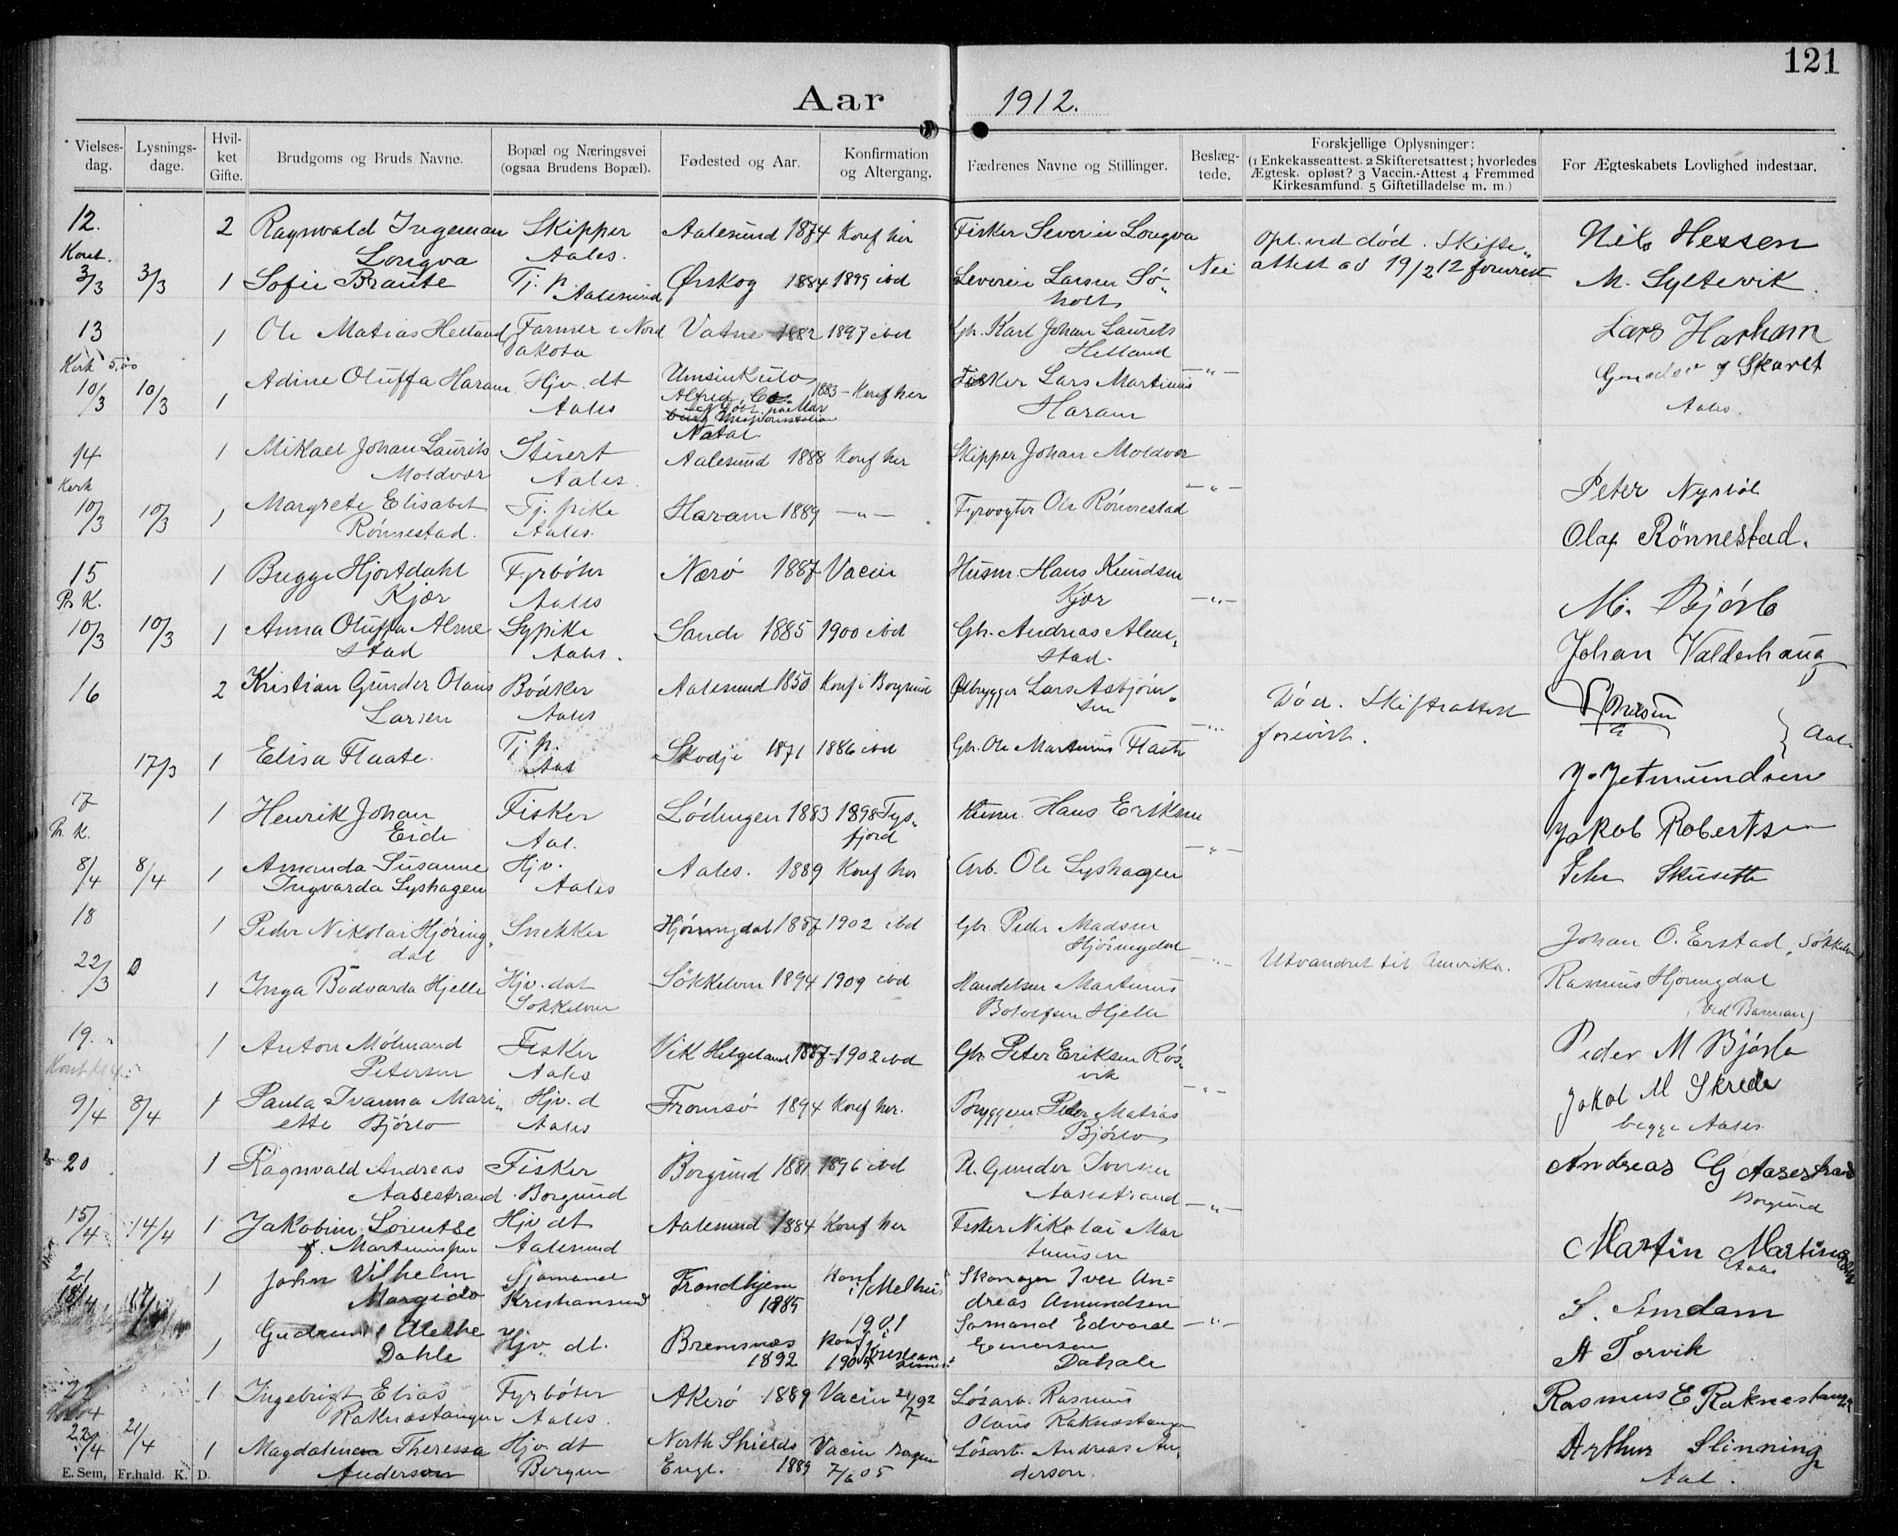 121
Aar 1912.
Vielses-dag. Lysnings-dage. Hvil-ket Gifte. Brudgoms og Bruds Navne. Bopæl og Næringsvei (ogsaa Brudens Bopæl). Fødested og Aar. Konfirmation og Altergang. Fædrenes Navne og Stillinger. Beslæg-tede. Forskjellige Oplysninger: (1 Enkekasseattest. 2 Skifteretsattest; hvorledes Ægtesk. opløst? 3 Vaccin.-Attest 4 Fremmed Kirkesamfund. 5 Giftetilladelse m. m.) For Ægteskabets Lovlighed indestaar.
12. 2 Ragnvald Ingeman Skipper Aalesund 1874 Konf her Fisker Severin Longva Opl. ved død. Skifte- Nils Hessen
Kont. Longva Aales. Nei attest av 19/2 12 forevist
3/3 3/3 1 Sofie Braute Tj. p. Aalesund Ørskog 1884 1899 ibd Severin Larsen Sø- M. Syltevik.
holt
13 1 Ole Matias Helland Farmer i Nord Vatne 1882 1897 ibd Gbr. Karl Johan Laurits Lars Harham
Kirk 5,00 Dakota Helland
10/3 10/3 1 Adine Oluffa Haram Hjv. dt Umsinkulo 1883 - Konf her Fisker Lars Martinus -„- Skaret
Aales Alfred Co. Haram Aales.
Natal.
14 1 Mikael Johan Laurits Stuert Aalesund 1888 Konf her Skipper Johan Moldvær
Kirk Moldvær Aales. -„- Peter Nysbøl
10/3 10/3 1 Margrete Elisabet Tj. pike Haram 1889 -„- Fyrvogter Ole Rønnestad
Rønnestad. Aales. Olaf Rönnestad.
15 1 Bugge Hjortdahl Fyrbøter Nærø 1887 Vacin Husm. Hans Knudsen
Pr. K. Kjær Aales Kjær -„- M. Bjørlo
10/3 10/3 1 Anna Oluffa Alme- Sypike Sande 1885 1900 ibd Gbr. Andreas Alme- Johan Valderhaug
stad Aales. stad.
16 2 Kristian Gunder Olaus Bødker Aalesund 1850 Konf i Borgund Ølbrygger Lars Asbjørn- Død. Skifteattest
Larsen Aales sen -„- forevist. } Aal.
17/3 1 Elisa Flaate. Tj. p. Aal Skodje 1871 1886 ibd Gbr. Ole Martinus Flaate J. Jetmundsen
17 1 Henrik Johan Fisker Lødingen 1883 1898 Tys- Husm. Hans Eriksen Jakob Robertsen
Pr. K. Eide Aal. fjord -„-
8/4 8/4 1 Amanda Susanne Hjv. Aales. 1889 Konf her Arb. Ole Lyshagen Peter Skuseth
Ingvarda Lyshagen Aales
18 1 Peder Nikolai Hjøring- Snekker Hjørungdal 1887 1902 ibd Gbr. Peder Madsen Johan O. Erstad, Søkkelven
dal Hjørungdal -„- Utvandret til Amerika.
22/3 0 1 Inga Bodvarda Hjelle Hjv. dat Søkkelven 1894 1909 ibd Handelsm Martinus Rasmus Hjørungdal
Søkkelven Hjelle
19. 1 Anton Mølmand Fisker Vik Helgeland 1887 - 1902 ibd Gbr. Peter Eriksen Røs- Peder M Bjørlo
Kont kl 4 Petersen Aales vik -„-
9/4 8/4 1 Paula Ivanna Mari- Hjv. d Tromsø 1894 Konf her. Bryggem. Peder Matias Jakob M Skrede
ette Bjørlo Aales Bjørlo begge Aales.
20 1 Ragnvald Andreas Fisker Borgund 1881 1896 ibd Pl. Gunder Iversen Andreas G Aasestrand
Aasestrand Borgund Aasestrand -„- Borgund
15/4 14/4 1 Jakobine Lorentse Hjv dt Aalesund 1884 Konf her Fisker Nikolai Mar- Martin Martinussen
f. Martinussen Aalesund tinusen Aales
21 1 John Vilhelm Sjømand Trondhjem Konf i Melhus Skomager Iver An=
18/4 17/4 Margido Kristiansund 1885 1901 dreas Amundsen S. Amdam
1 Gudrun Alethe Hjv. dt. Bremsnes Konf i Kristian- Sømand Edvard -„-
Dahle 1892 sund Dahle A Torvik
22 1 Ingebrigt Elias Fyrbøter Akerø 1889 Vacin 24/7 92 Løsarb. Rasmus Rasmus E Raknestangen
Raknestangen Aales. Olaus Raknestangen
22/4 21/4 1 Magdalene Theressa Hjv. dt North Shields Vacin Bergen Løsarb. Andreas An- Arthur Slinning
Anderson Bergen Engl. 1889 7/6 05 derson. Aal.
E. Sem, Fr.hald. K. D.